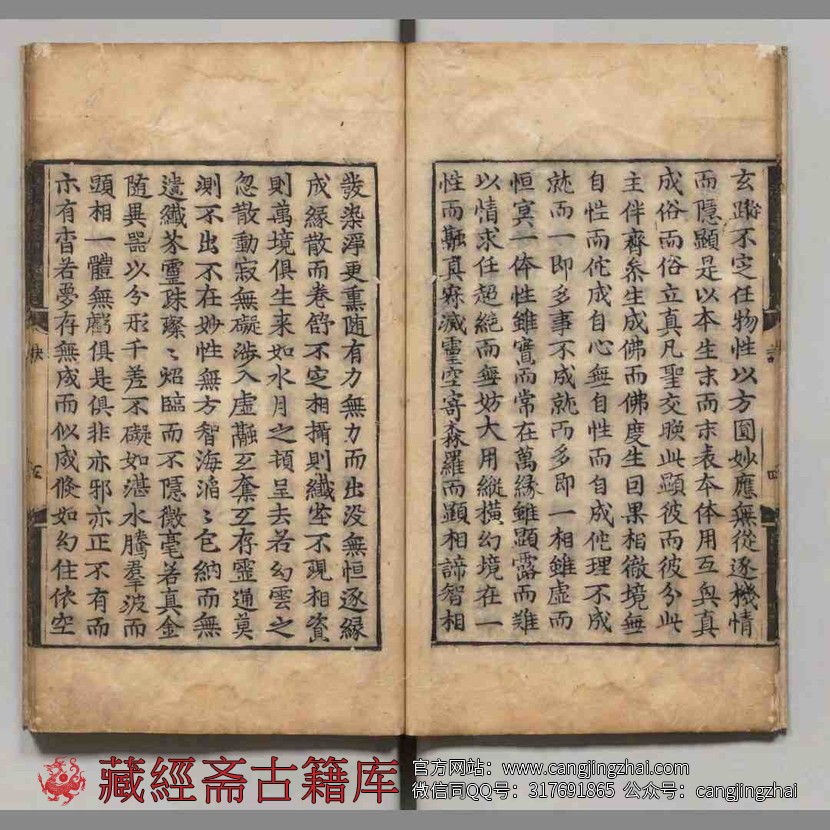 玄蹤不定任物性以方圓妙應無從逐機情
而隱顯是以本生末而末表本体用互興真
成俗而俗立真凡聖交暎此顯彼而彼分此
主伴齊叅生成佛而佛度生因果相徹境無
自性而佗成自心無自性而自成佗理不成
就而一即多事不成就而多即一相雖虛而
恒冥一体性雖實而常在萬緣雖顯露而難
以情求任超絕而無妨大用縱橫幻境在一
性而融真寂滅靈空寄森羅而顯相諦智相
發染淨更熏随有力無力而出没無恒逐緣
成緣散而卷舒不定相攝則纖塵不現相資
則萬境俱生来如水月之頓呈去若幻雲之
忽散動寂無礙涉入虛融互奪互存靈通莫
測不出不在妙性無方智海滔〻包納而無
遺纖芥靈珠璨〻炤臨而不隱微毫若真金
随異器以分形千差不礙如湛水騰羣波而
顯相一體無虧俱是俱非亦邪亦正不有而
亦有杳若夢存無成而似成倏如幻住依空
藏經斋古籍库
官方网站：www.cangjingzhai.com
微信同QQ号：317691865 公众号：cangjingzhai